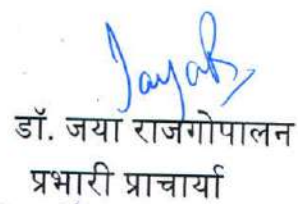 JayaR
डॉ. जया राजगोपालन
प्रभारी प्राचार्या